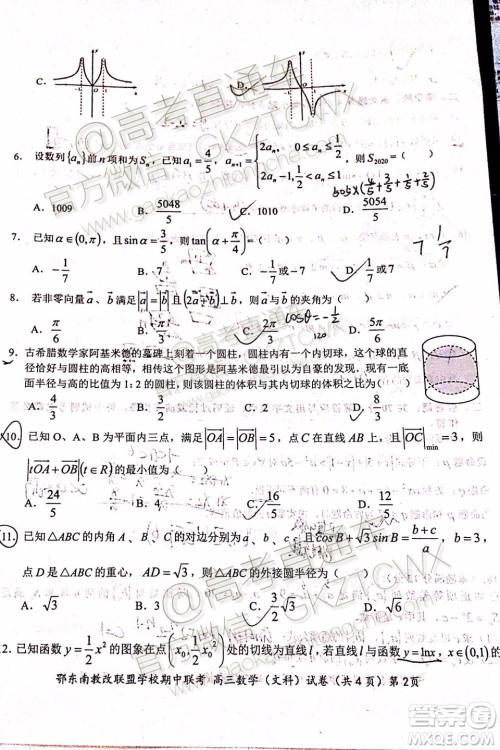 C.
D.
6. 设数列{aₙ}前n项和为Sₙ，已知a₁=4/5，aₙ₊₁={2aₙ, 0≤aₙ≤1/2; 2aₙ-1, 1/2<aₙ≤1，则S₂₀₂₀=（　）
A. 1009 B. 5048/5 C. 1010 D. 5054/5
7. 已知α∈(0,π)，且sinα=3/5，则tan(α+π/4)=（　）
7 1/7
A. -1/7 B. 7 C. 1/7 D. 1/7或7
8. 若非零向量a、b满足|a|=|b|且(2a+b)⊥b，则a与b的夹角为（　）
cosθ=-1/2
A. π/6 B. π/3 C. 2π/3 D. 5π/6
120
9. 古希腊数学家阿基米德的墓碑上刻着一个圆柱，圆柱内有一个内切球，这个球的直
径恰好与圆柱的高相等，相传这个图形是阿基米德引以为自豪的发现．我们有一底
面半径与高的比值1:2的圆柱，则该圆柱的体积与其内切球的体积之比为（　）
A. 4/3 B. 3/2 C. 2 D. 8/3
10. 已知O、A、B为平面内三点，满足|OA|=|OB|=5，点C在直线AB上，且|OC|min=3，则
|tOA+OB|(t∈R)的最小值为（　）
A. 24/5 B. 4 C. 16/5 D. 12/5
11. 已知△ABC的内角A、B、C的对边分别为a、b、c，且cosB+√3sinB=(b+c)/a，
点D是△ABC的重心，AD=√3，则△ABC的外接圆半径为（　）
A. √3 B. 3 C. 3/2 D. √3
2. 已知函数y=1/2x²的图象在点(x₀,1/2x₀²)处的切线为直线l，若直线l与函数y=lnx，x∈(0,1)的
鄂东南教改联盟学校期中联考 高三数学（文科）试卷（共4页）第2页
@高考直通车
官方微信：GKZTCWX